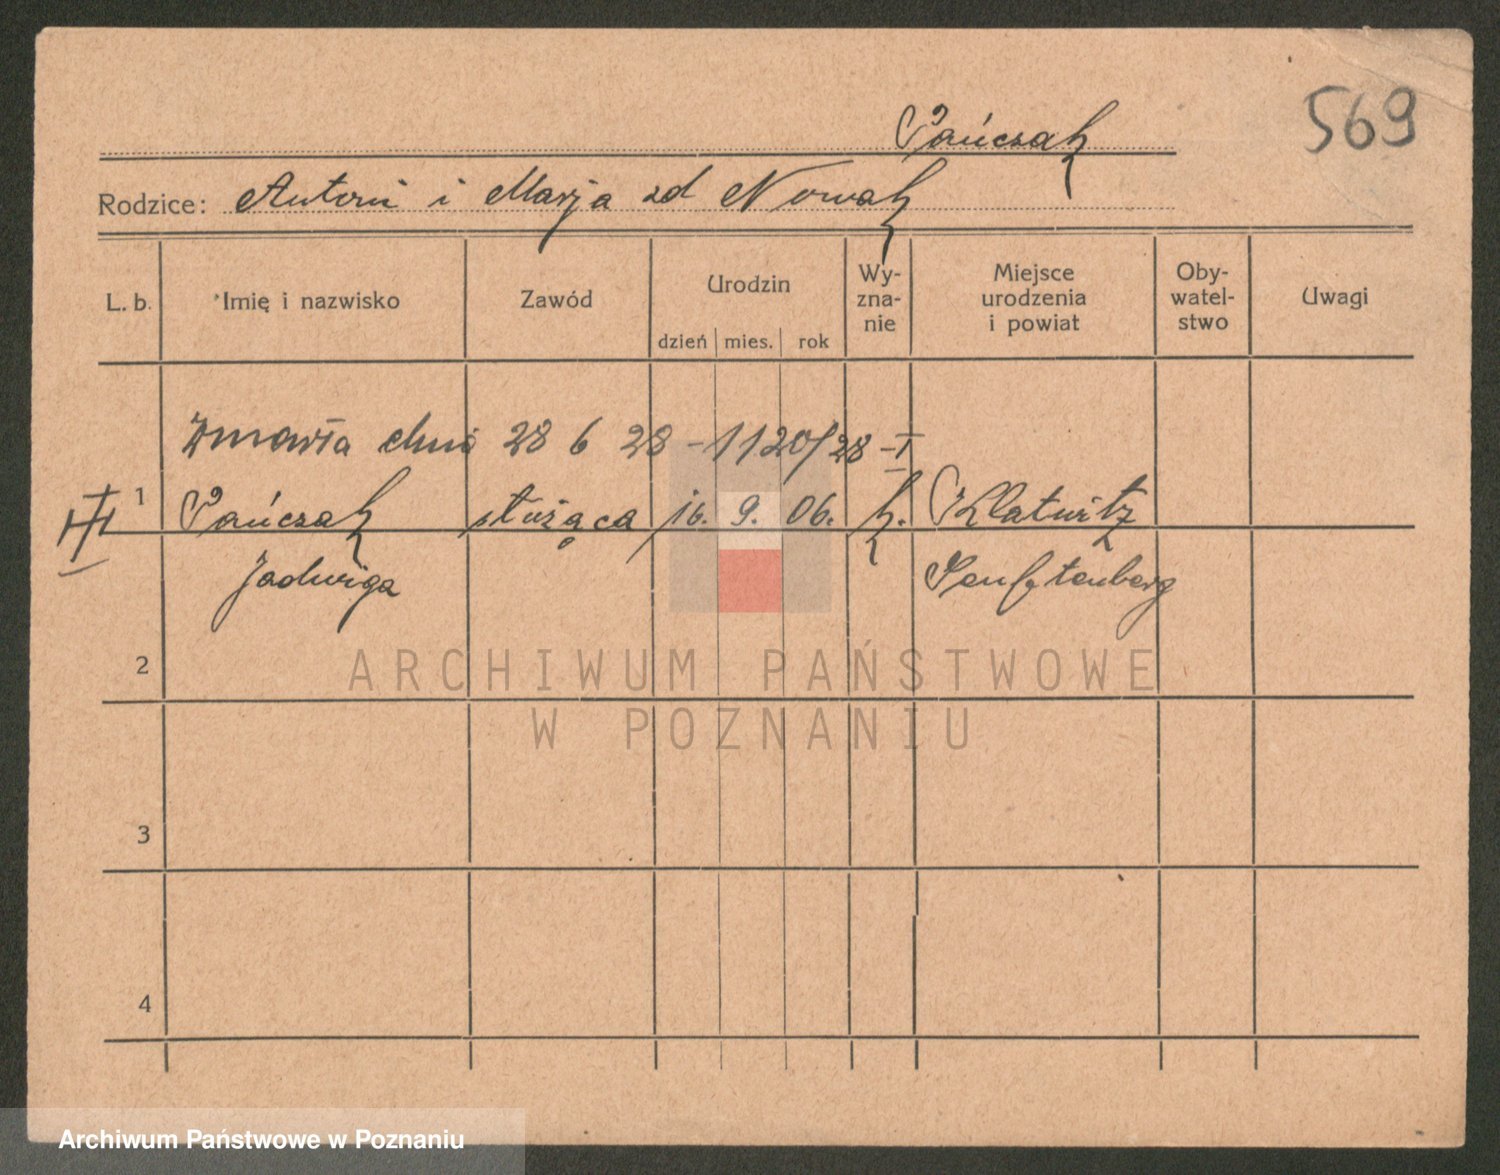 569
Pańczak
Rodzice: Antoni i Marja zd Nowak
L. b. Imię i nazwisko Zawód Urodzin dzień mies. rok Wy-zna-nie Miejsce urodzenia i powiat Oby-watel-stwo Uwagi
Zmarła dnia 28 6 28 - 1120/28 - I
1 Pańczak służąca 16. 9. 06. k. Klatwitz
Jadwiga Senftenberg
2
ARCHIWUM PAŃSTWOWE
W POZNANIU
3
4
Archiwum Państwowe w Poznaniu